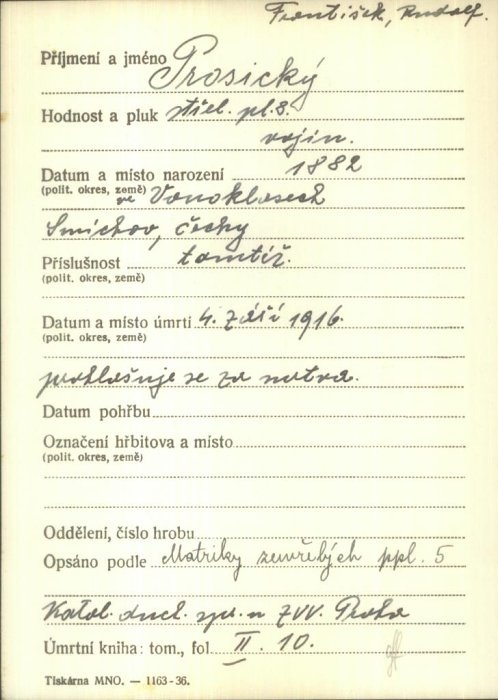 František, Rudolf.
Příjmení a jméno Prosický
Hodnost a pluk střel. pl. 8.
vojín.
Datum a místo narození 1882
(polit. okres, země) ve Vonoklasech
Smíchov, Čechy
Příslušnost tamtéž.
(polit. okres, země)
Datum a místo úmrtí 4. září 1916.
(polit. okres, země)
prohlašuje se za mrtva.
Datum pohřbu
Označení hřbitova a místo
(polit. okres, země)
Oddělení, číslo hrobu
Opsáno podle Matriky zemřelých ppl. 5
Katol. duch. spr. u ZVV. Praha
Úmrtní kniha: tom., fol. II. 10.
Tiskárna MNO. — 1163-36.